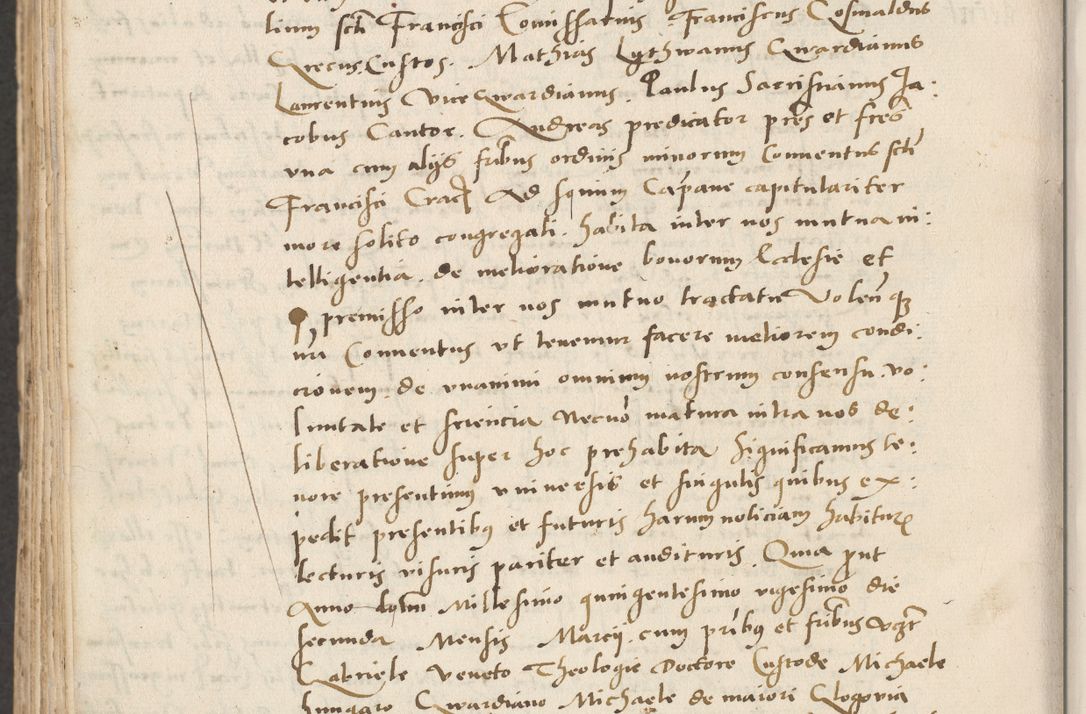 lium scti Francisci Comissarius Franciscus Cosmaldus
Grecus Custos. Mathias Lythwanus Gwardianus
Laurentius Vice Gwardianus. Paulus Sacristianus Ja:
cobus Cantor. Andreas predicator pres et fres
vna cum alijs fribus ordinis minorum Conuentus scti
Francisci Crac Ad sonum Capane capitulariter
more solito congregati. habita inter nos mutua in:
telligentia de melioratione bonorum Ecclesie et
premisso inter nos mutuo tractatu Volen q
nri Conuentus vt tenemur facere meliorem condi:
cionem de vnanimi omnium nostrum consensu vo:
luntate et sciencia Necno matura intra nos de:
liberatione super hoc prehabita Significamus te:
nore presentium vniuersis et singulis quibus ex:
pedit presentibus et futuris harum noticiam habituris
lecturis visuris pariter et audituris Quia put
Anno dni Millesimo quingentesimo vigesimo die
secunda Mensis Marcij cum pribus et fribus
Gabriele Veneto Theologie Doctore Custode Michaele
hungaro Gwardiano Michaele de maiori Glogovia